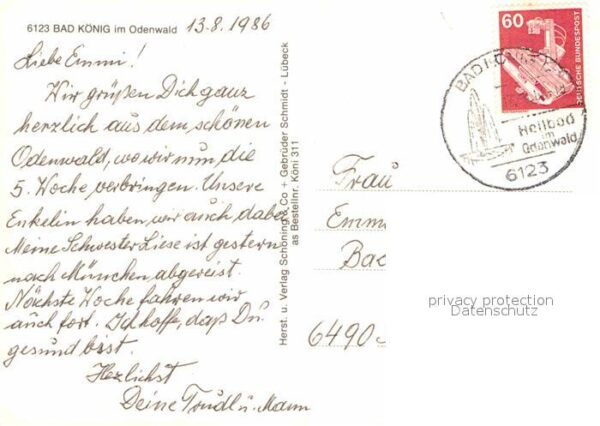 6123 BAD KÖNIG im Odenwald
13.8.1986
Liebe Emmi!
Wir grüßen Dich ganz
herzlich aus dem schönen
Odenwald, wo wir nun die
5. Woche verbringen. Unsere
Enkelin haben wir auch dabei
Meine Schwester Liese ist gestern
nach München abgereist.
Nächste Woche fahren wir
auch fort. Ich hoffe, daß Du
gesund bist.
Herzlichst
Deine Trudl u. Mann
Herst. u. Verlag Schöning & Co + Gebrüder Schmidt - Lübeck
as Bestellnr. Köni 311
60
DEUTSCHE BUNDESPOST
BAD KÖNIG
Heilbad
im
Odenwald
6123
Frau
Emm
Bac
6490
privacy protection
Datenschutz